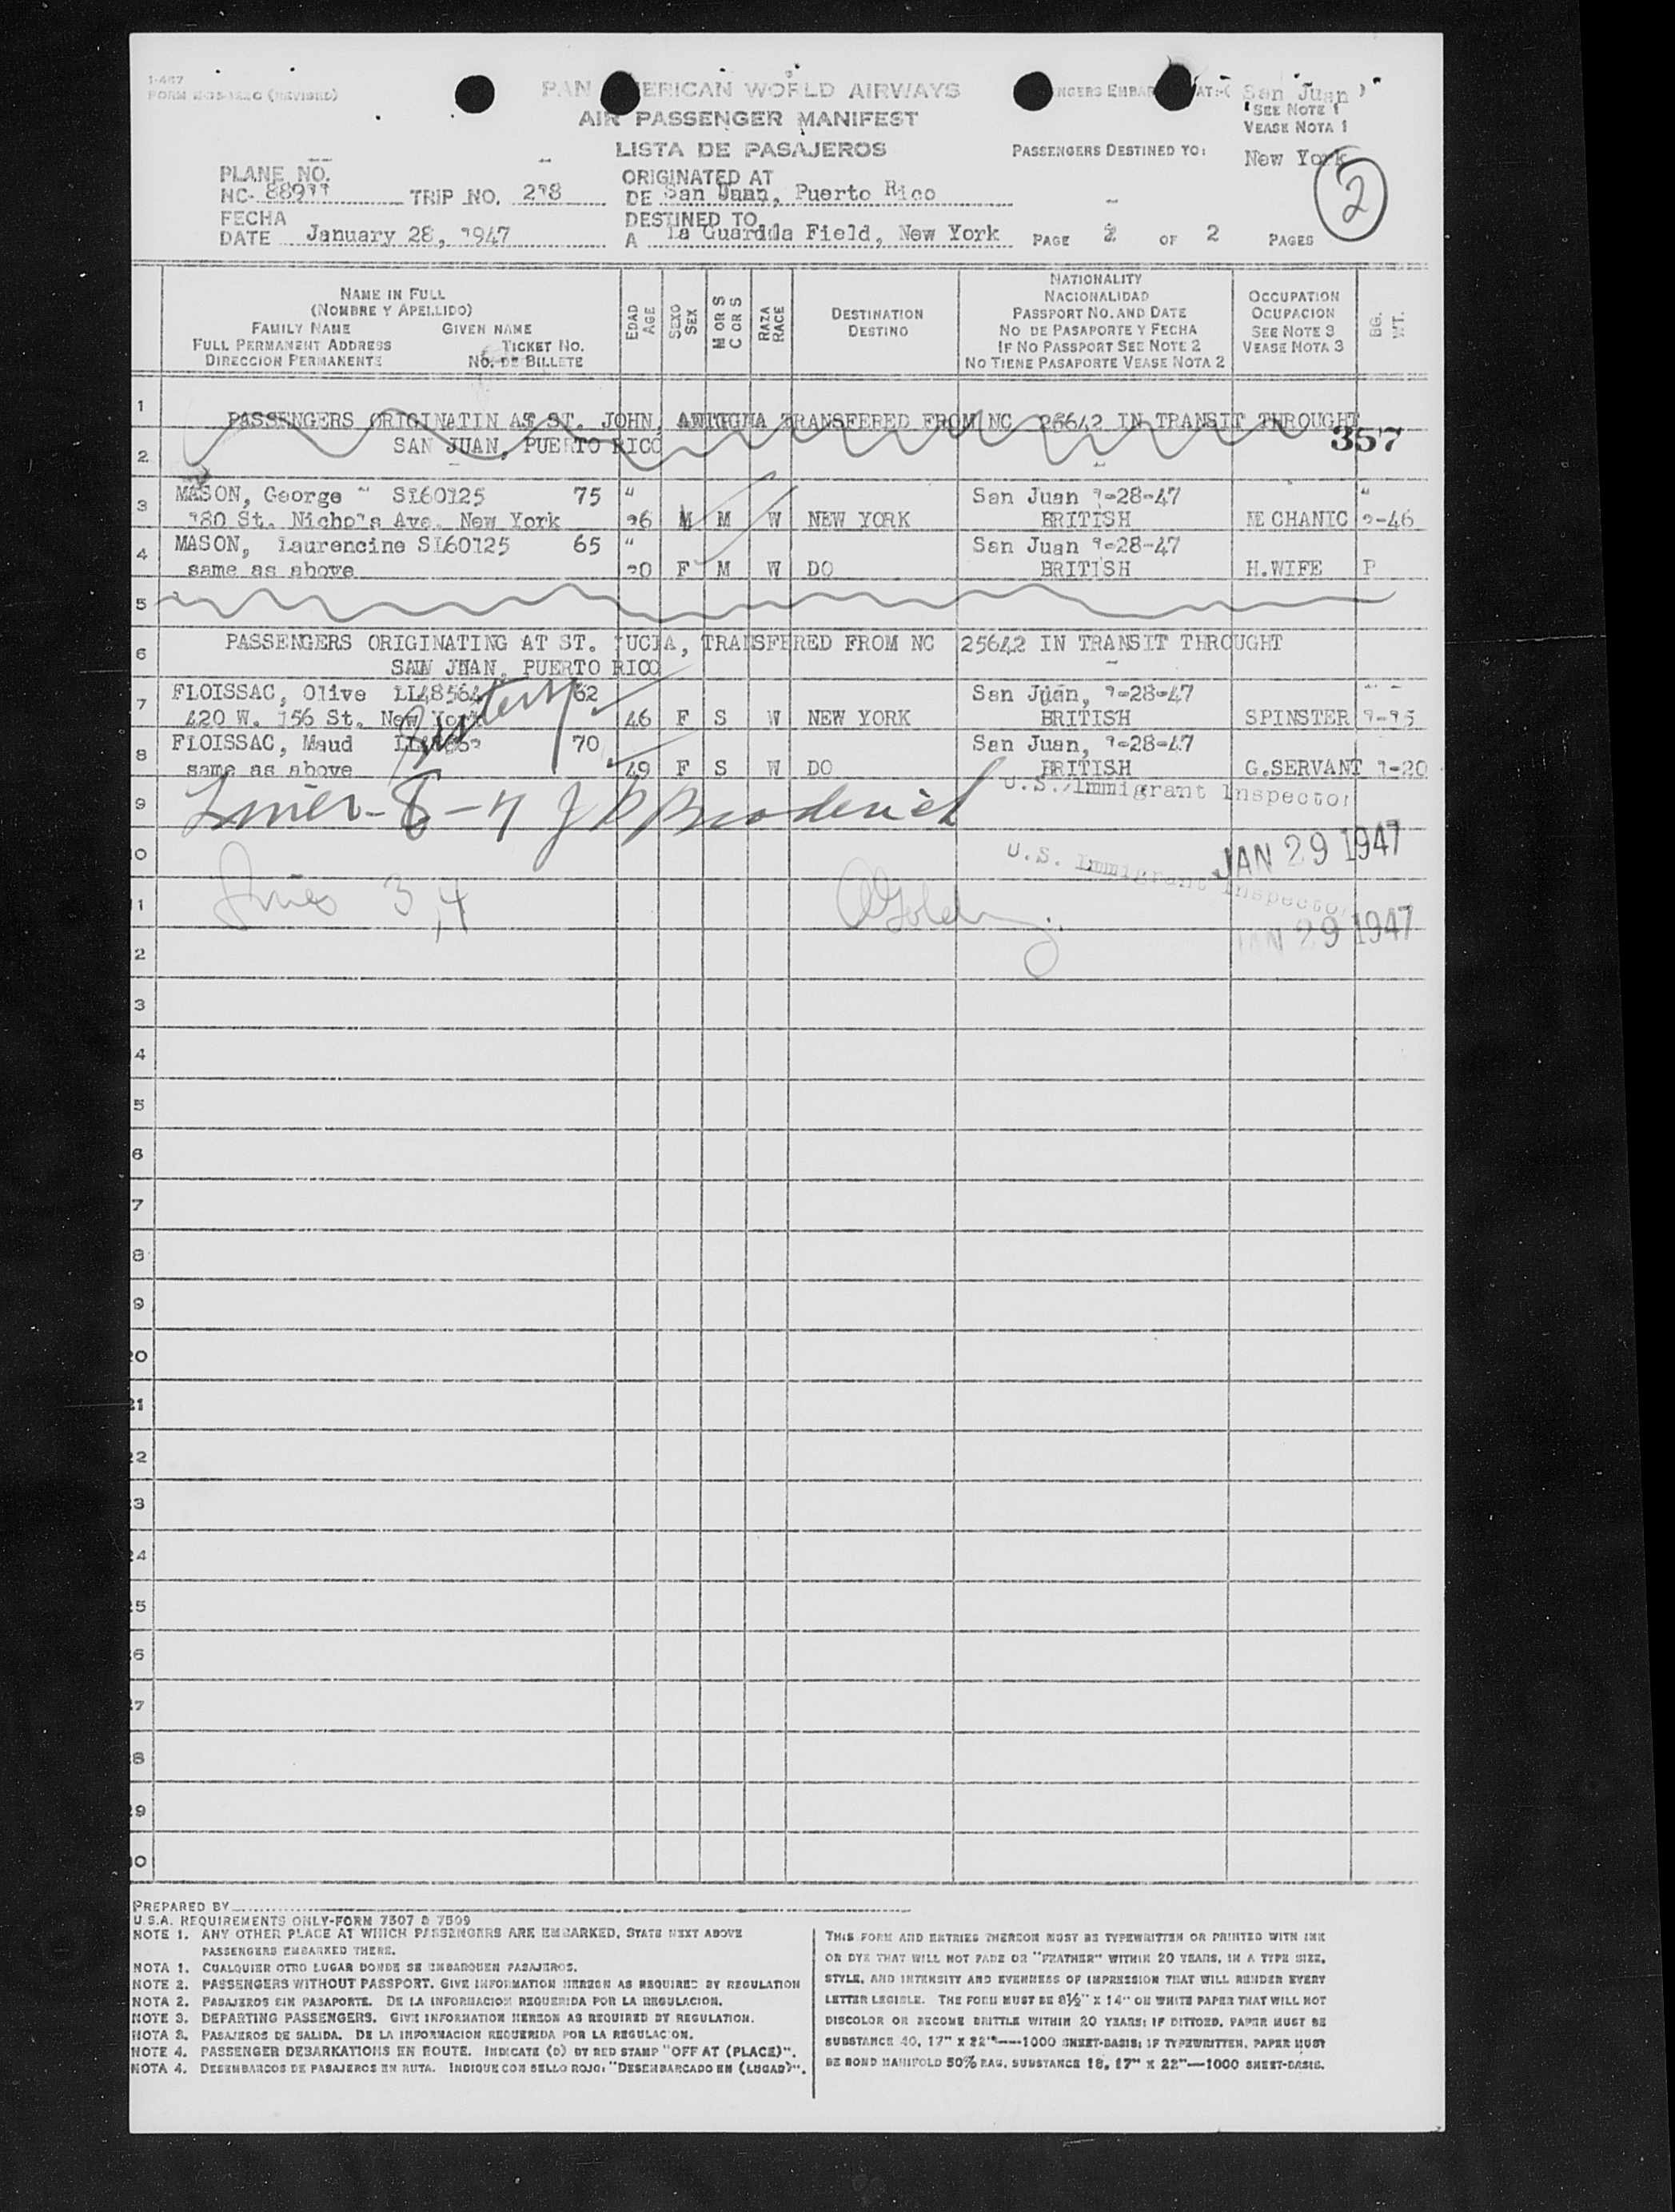 I-467
FORM (REVISED)
PAN AMERICAN WORLD AIRWAYS
AIR PASSENGER MANIFEST
LISTA DE PASAJEROS
San Juan
SEE NOTE 1
VEASE NOTA 1
PASSENGERS DESTINED TO: New York
2
PLANE NO.
NC- 88911 TRIP NO. 218
ORIGINATED AT
DE San Juan, Puerto Rico
FECHA
DATE January 28, 1947
DESTINED TO
A La Guardia Field, New York
PAGE 2 OF 2 PAGES
NAME IN FULL
(NOMBRE Y APELLIDO)
FAMILY NAME GIVEN NAME
FULL PERMANENT ADDRESS TICKET NO.
DIRECCION PERMANENTE NO. DE BILLETE
EDAD AGE
SEXO SEX
M OR S C OR S
RAZA RACE
DESTINATION
DESTINO
NATIONALITY
NACIONALIDAD
PASSPORT NO. AND DATE
NO DE PASAPORTE Y FECHA
IF NO PASSPORT SEE NOTE 2
NO TIENE PASAPORTE VEASE NOTA 2
OCCUPATION
OCUPACION
SEE NOTE 3
VEASE NOTA 3
BG. WT.
1 PASSENGERS ORIGINATIN AT ST. JOHN, TRANSFERED FROM NC 25642 IN TRANSIT THROUGHT
2 SAN JUAN, PUERTO RICO
357
3 MASON, George SI60125 75 San Juan 1-28-47
St. Nichols Ave. New York 26 M M W NEW YORK BRITISH MECHANIC 2-46
4 MASON, Laurencine SI60125 65 San Juan 1-28-47
same as above 20 F M W DO BRITISH H.WIFE P
5
6 PASSENGERS ORIGINATING AT ST. LUCIA, TRANSFERED FROM NC 25642 IN TRANSIT THROUGHT
SAN JUAN, PUERTO RICO
7 FLOISSAC, Olive 62 San Juan, 1-28-47
420 W. 156 St. New York 46 F S W NEW YORK BRITISH SPINSTER 1-15
Sisters
8 FLOISSAC, Maud 70 San Juan, 1-28-47
same as above 49 F S W DO BRITISH G.SERVANT 1-20
9 Lines - 8 - 7 J P Broderick U.S. Immigrant Inspector
10 U.S. Immigrant Inspector JAN 29 1947
11 Lines 3,4
JAN 29 1947
2
3
4
5
6
7
8
9
20
21
22
23
24
25
26
27
28
29
30
PREPARED BY
U.S.A. REQUIREMENTS ONLY-FORM 7507 & 7509
NOTE 1. ANY OTHER PLACE AT WHICH PASSENGERS ARE EMBARKED, STATE NEXT ABOVE
PASSENGERS EMBARKED THERE.
NOTA 1. CUALQUIER OTRO LUGAR DONDE SE EMBARQUEN PASAJEROS.
NOTE 2. PASSENGERS WITHOUT PASSPORT. GIVE INFORMATION HEREON AS REQUIRED BY REGULATION
NOTA 2. PASAJEROS SIN PASAPORTE. DE LA INFORMACION REQUERIDA POR LA REGULACION.
NOTE 3. DEPARTING PASSENGERS. GIVE INFORMATION HEREON AS REQUIRED BY REGULATION.
NOTA 3. PASAJEROS DE SALIDA. DE LA INFORMACION REQUERIDA POR LA REGULACION.
NOTE 4. PASSENGER DEBARKATIONS EN ROUTE. INDICATE (D) BY RED STAMP "OFF AT (PLACE)".
NOTA 4. DESEMBARCOS DE PASAJEROS EN RUTA. INDIQUE CON SELLO ROJO: "DESEMBARCADO EN (LUGAR)".
THIS FORM AND ENTRIES THEREON MUST BE TYPEWRITTEN OR PRINTED WITH INK
OR DYE THAT WILL NOT FADE OR "FEATHER" WITHIN 20 YEARS, IN A TYPE SIZE,
STYLE, AND INTENSITY AND EVENNESS OF IMPRESSION THAT WILL RENDER EVERY
LETTER LEGIBLE. THE FORM MUST BE 8½" X 14" ON WHITE PAPER THAT WILL NOT
DISCOLOR OR BECOME BRITTLE WITHIN 20 YEARS; IF DITTOED, PAPER MUST BE
SUBSTANCE 40, 17" X 22"——1000 SHEET-BASIS; IF TYPEWRITTEN, PAPER MUST
BE BOND MANIFOLD 50% RAG, SUBSTANCE 18, 17" X 22"—1000 SHEET-BASIS.